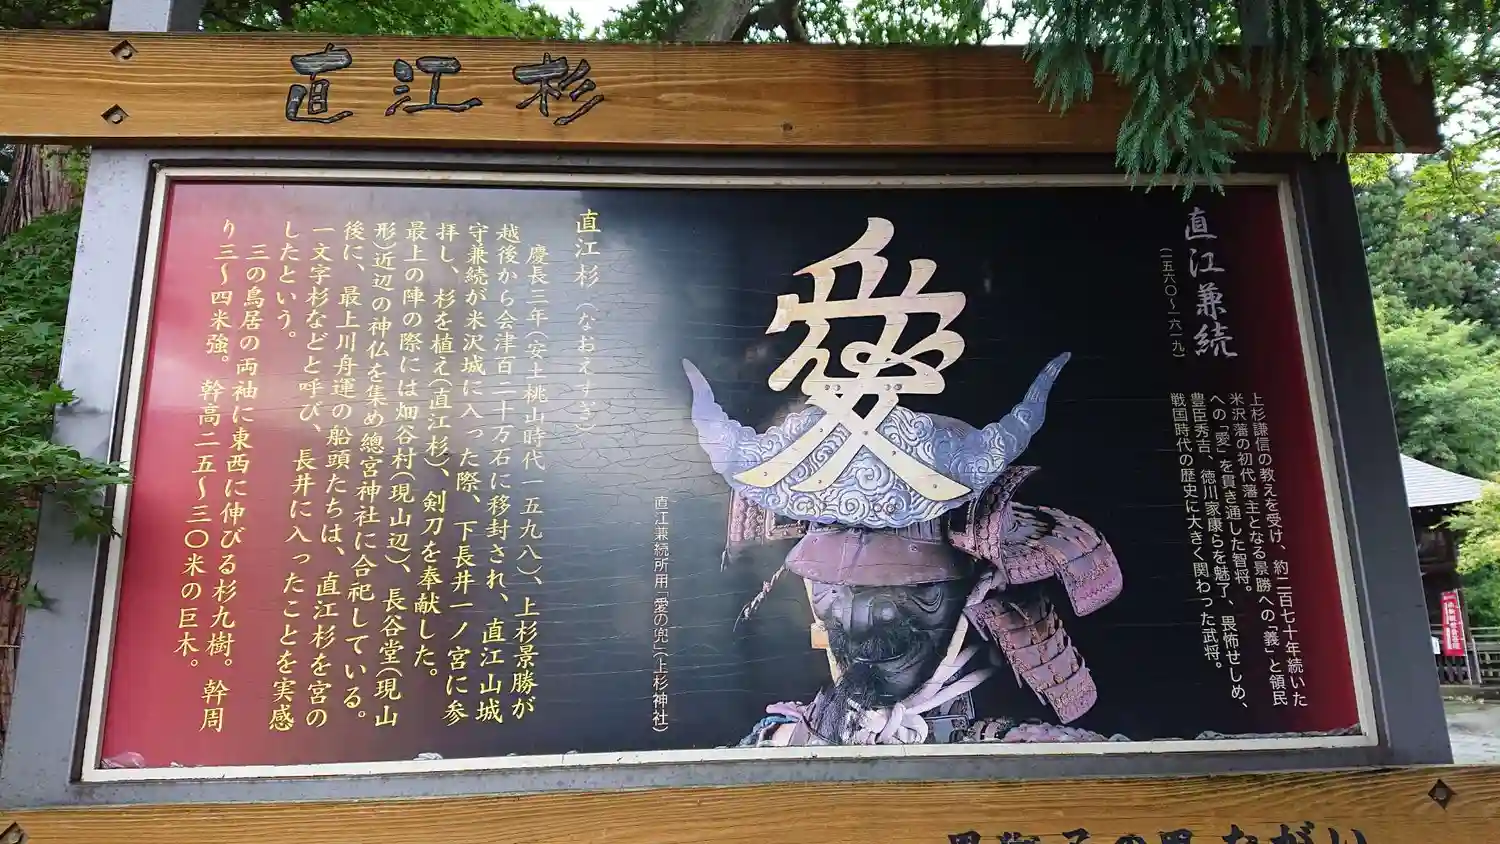 直江杉
直江兼続
(一五六〇〜一六一九)
上杉謙信の教えを受け、約二百七十年続いた
米沢藩の初代藩主となる景勝への「義」と領民
への「愛」を貫き通した智将。
豊臣秀吉、徳川家康らを魅了、畏怖せしめ、
戦国時代の歴史に大きく関わった武将。
愛
直江兼続所用「愛の兜」(上杉神社)
直江杉(なおえすぎ)
慶長三年(安土桃山時代一五九八)、上杉景勝が
越後から会津百二十万石に移封され、直江山城
守兼続が米沢城に入った際、下長井一ノ宮に参
拝し、杉を植え(直江杉)、剣刀を奉献した。
最上の陣の際には畑谷村(現山辺)、長谷堂(現山
形)近辺の神仏を集め總宮神社に合祀している。
後に、最上川舟運の船頭たちは、直江杉を宮の
一文字杉などと呼び、長井に入ったことを実感
したという。
三の鳥居の両袖に東西に伸びる杉九樹。幹周
り三〜四米強。幹高二五〜三〇米の巨木。